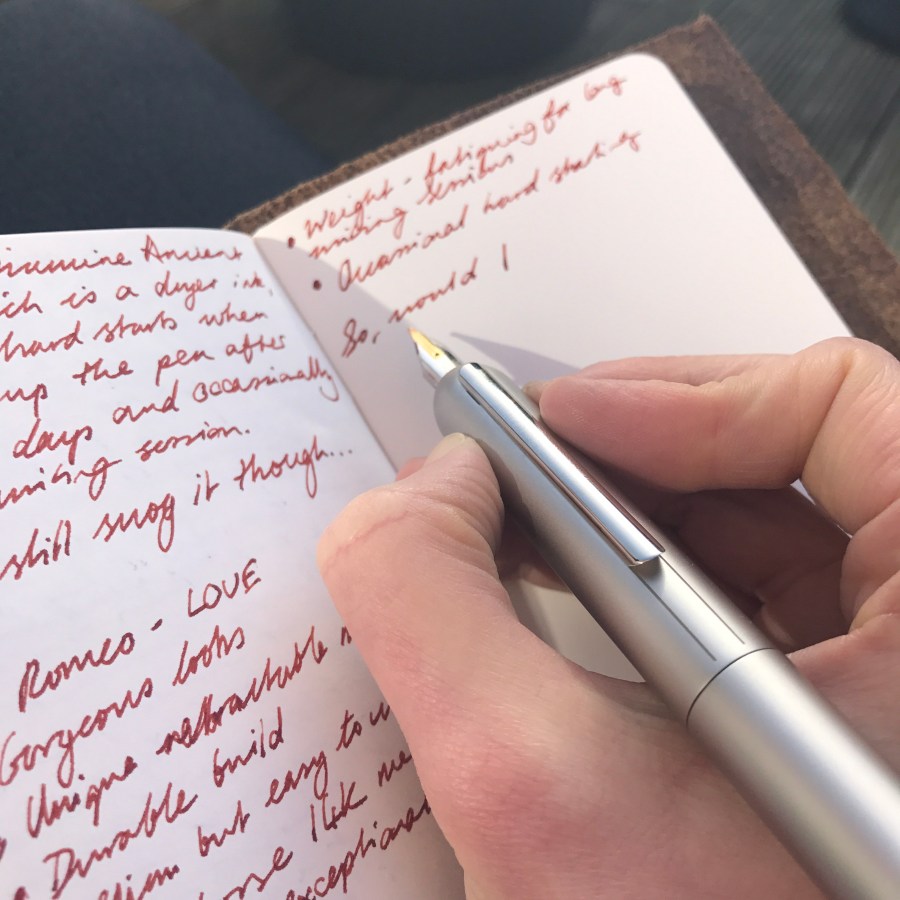 Ancient
ich is a dryer ink,
hard starts when
up the pen after
days and occassionally
writing session.
still snog it though...
Romeo - LOVE
Gorgeous looks
• Unique retractable
• Durable build
but easy to
like me
exceptional
• Weight - fatiguing for long
writing sessions
• Occasional hard starting
So, would I